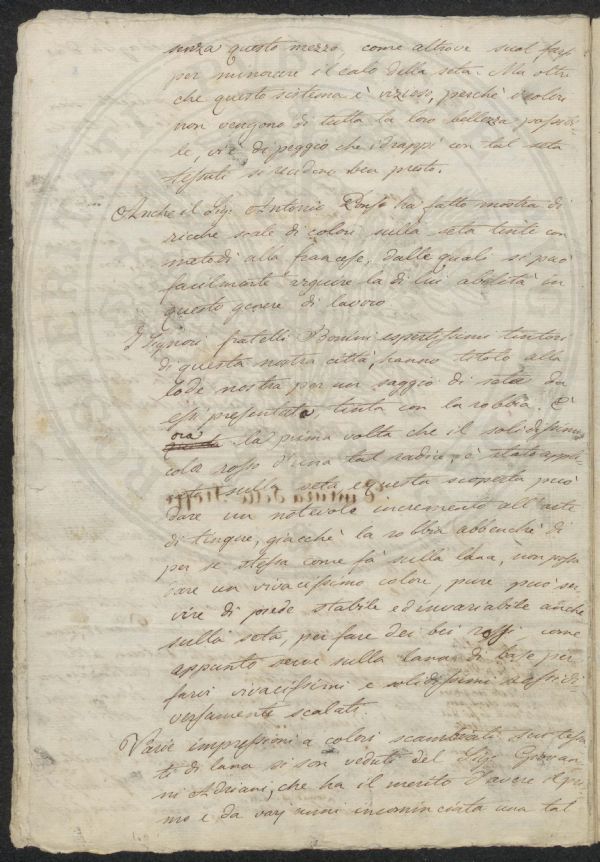 senza questo mezzo, come altrove suol farsi
per minorare il calo della seta. Ma oltre
che questo sistema è vizioso, perchè i colori
non vengono di tutta la loro bellezza possibi-
le, vi è di peggio che i drappi con tal seta
tessuti si recidono ben presto.
Anche il Sig. Antonio ha fatto mostra di
ricche scale di colori sulla seta tinte con
metodi alla francese, dalle quali si può
facilmente la di lui abilità in
questo genere di lavoro
I Signori fratelli Bonini espertissimi tintori
di questa nostra città, hanno titolo alla
lode nostra per un saggio di seta da
essi presentata, tinta con la robbia. È
ora la prima volta che il solidissimo
color rosso d'una tal radice, è stato appli-
cato sulla seta, e questa scoperta può
dare un notevole incremento all'arte
di tingere, giacchè la robbia abbenchè di
per se stessa come fà sulla lana, non possa
dare un vivacissimo colore, pure può ser-
vire di piede stabile ed invariabile anche
sulla seta, per fare dei bei rossi, come
appunto serve sulla lana di base per
farvi vivacissimi e solidissimi rossi di-
versamente scalati.
Varie impressioni a colori scambiati su tessu-
ti di lana si son veduti del Sig. Giovan-
ni Adriani, che ha il merito d'avere il pri-
mo e da varj anni incominciata una tal